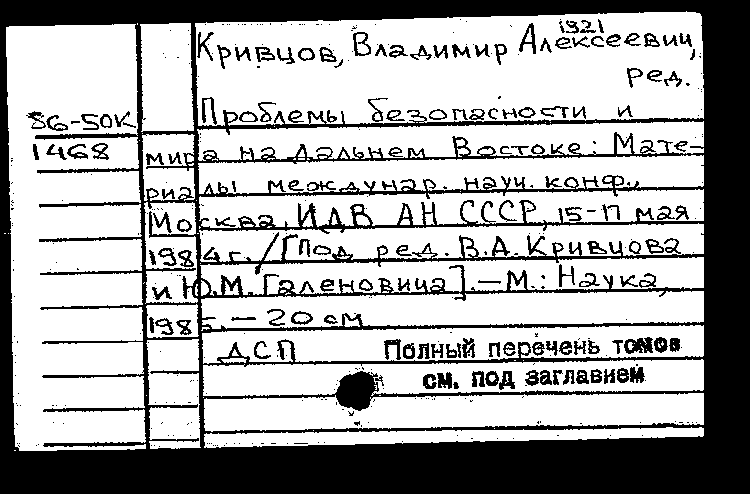 1921
Кривцов, Владимир Алексеевич,
ред.
86-50К
1468
Проблемы безопасности и
мира на Дальнем Востоке: Мате-
риалы междунар. науч. конф.,
Москва, ИДВ АН СССР, 15-17 мая
1984 г. / [Под ред. В.А. Кривцова
и Ю.М. Галеновича]. — М.: Наука,
1985. — 20 см
ДСП
Полный перечень томов
см. под заглавием